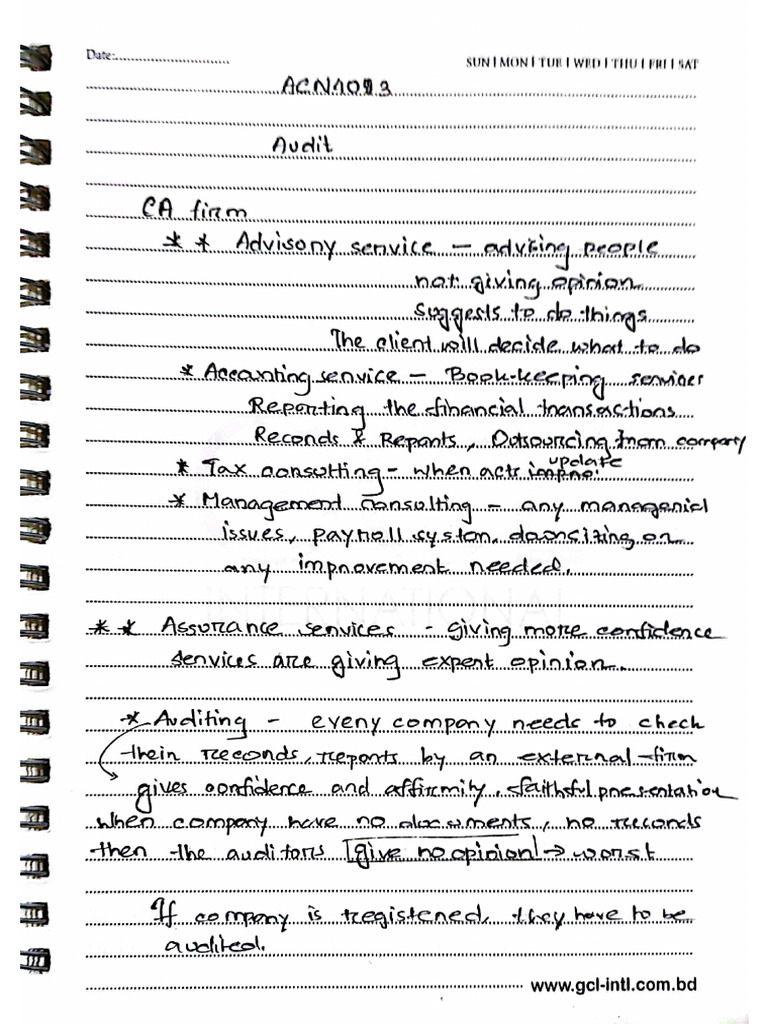 Date:
SUN | MON | TUE | WED | THU | FRI | SAT
Audit
CA firm
** Advisory service – advising people
not giving opinion
suggests to do things
The client will decide what to do
* Accounting service – Book-keeping services
Reporting the financial transactions
Records & Reports, Outsourcing from company
* Tax consulting – when acts update
* Management consulting – any managerial
issues, payroll system, downsizing or
any improvement needed.
INTERNATIONAL
** Assurance services - giving more confidence
services are giving expert opinion.
* Auditing - every company needs to check
their records, reports by an external firm
gives confidence and affirmity, faithful presentation
when company have no documents, no records
then the auditors [give no opinion] → worst
If company is registered, they have to be
audited.
www.gcl-intl.com.bd